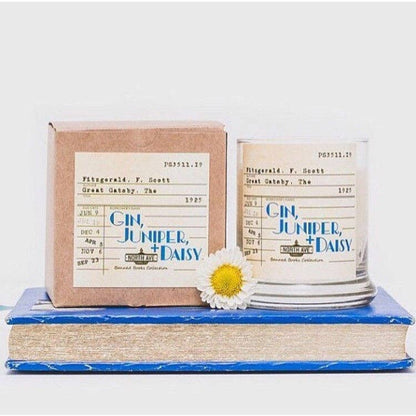 PS3511.I9
Fitzgerald. F. Scott
Great Gatsby. The
1925
JUN 9
DEC 4
APR 5
NOV 6
SEP 23
GIN,
JUNIPER,
+ DAISY
NORTH AVE
Banned Books Collection
PS3511.I9
Fitzgerald. F. Scott
Great Gatsby. The
1925
JUN 9
DEC 4
APR 5
NOV 6
SEP 23
GIN,
JUNIPER,
+ DAISY
NORTH AVE
Banned Books Collection